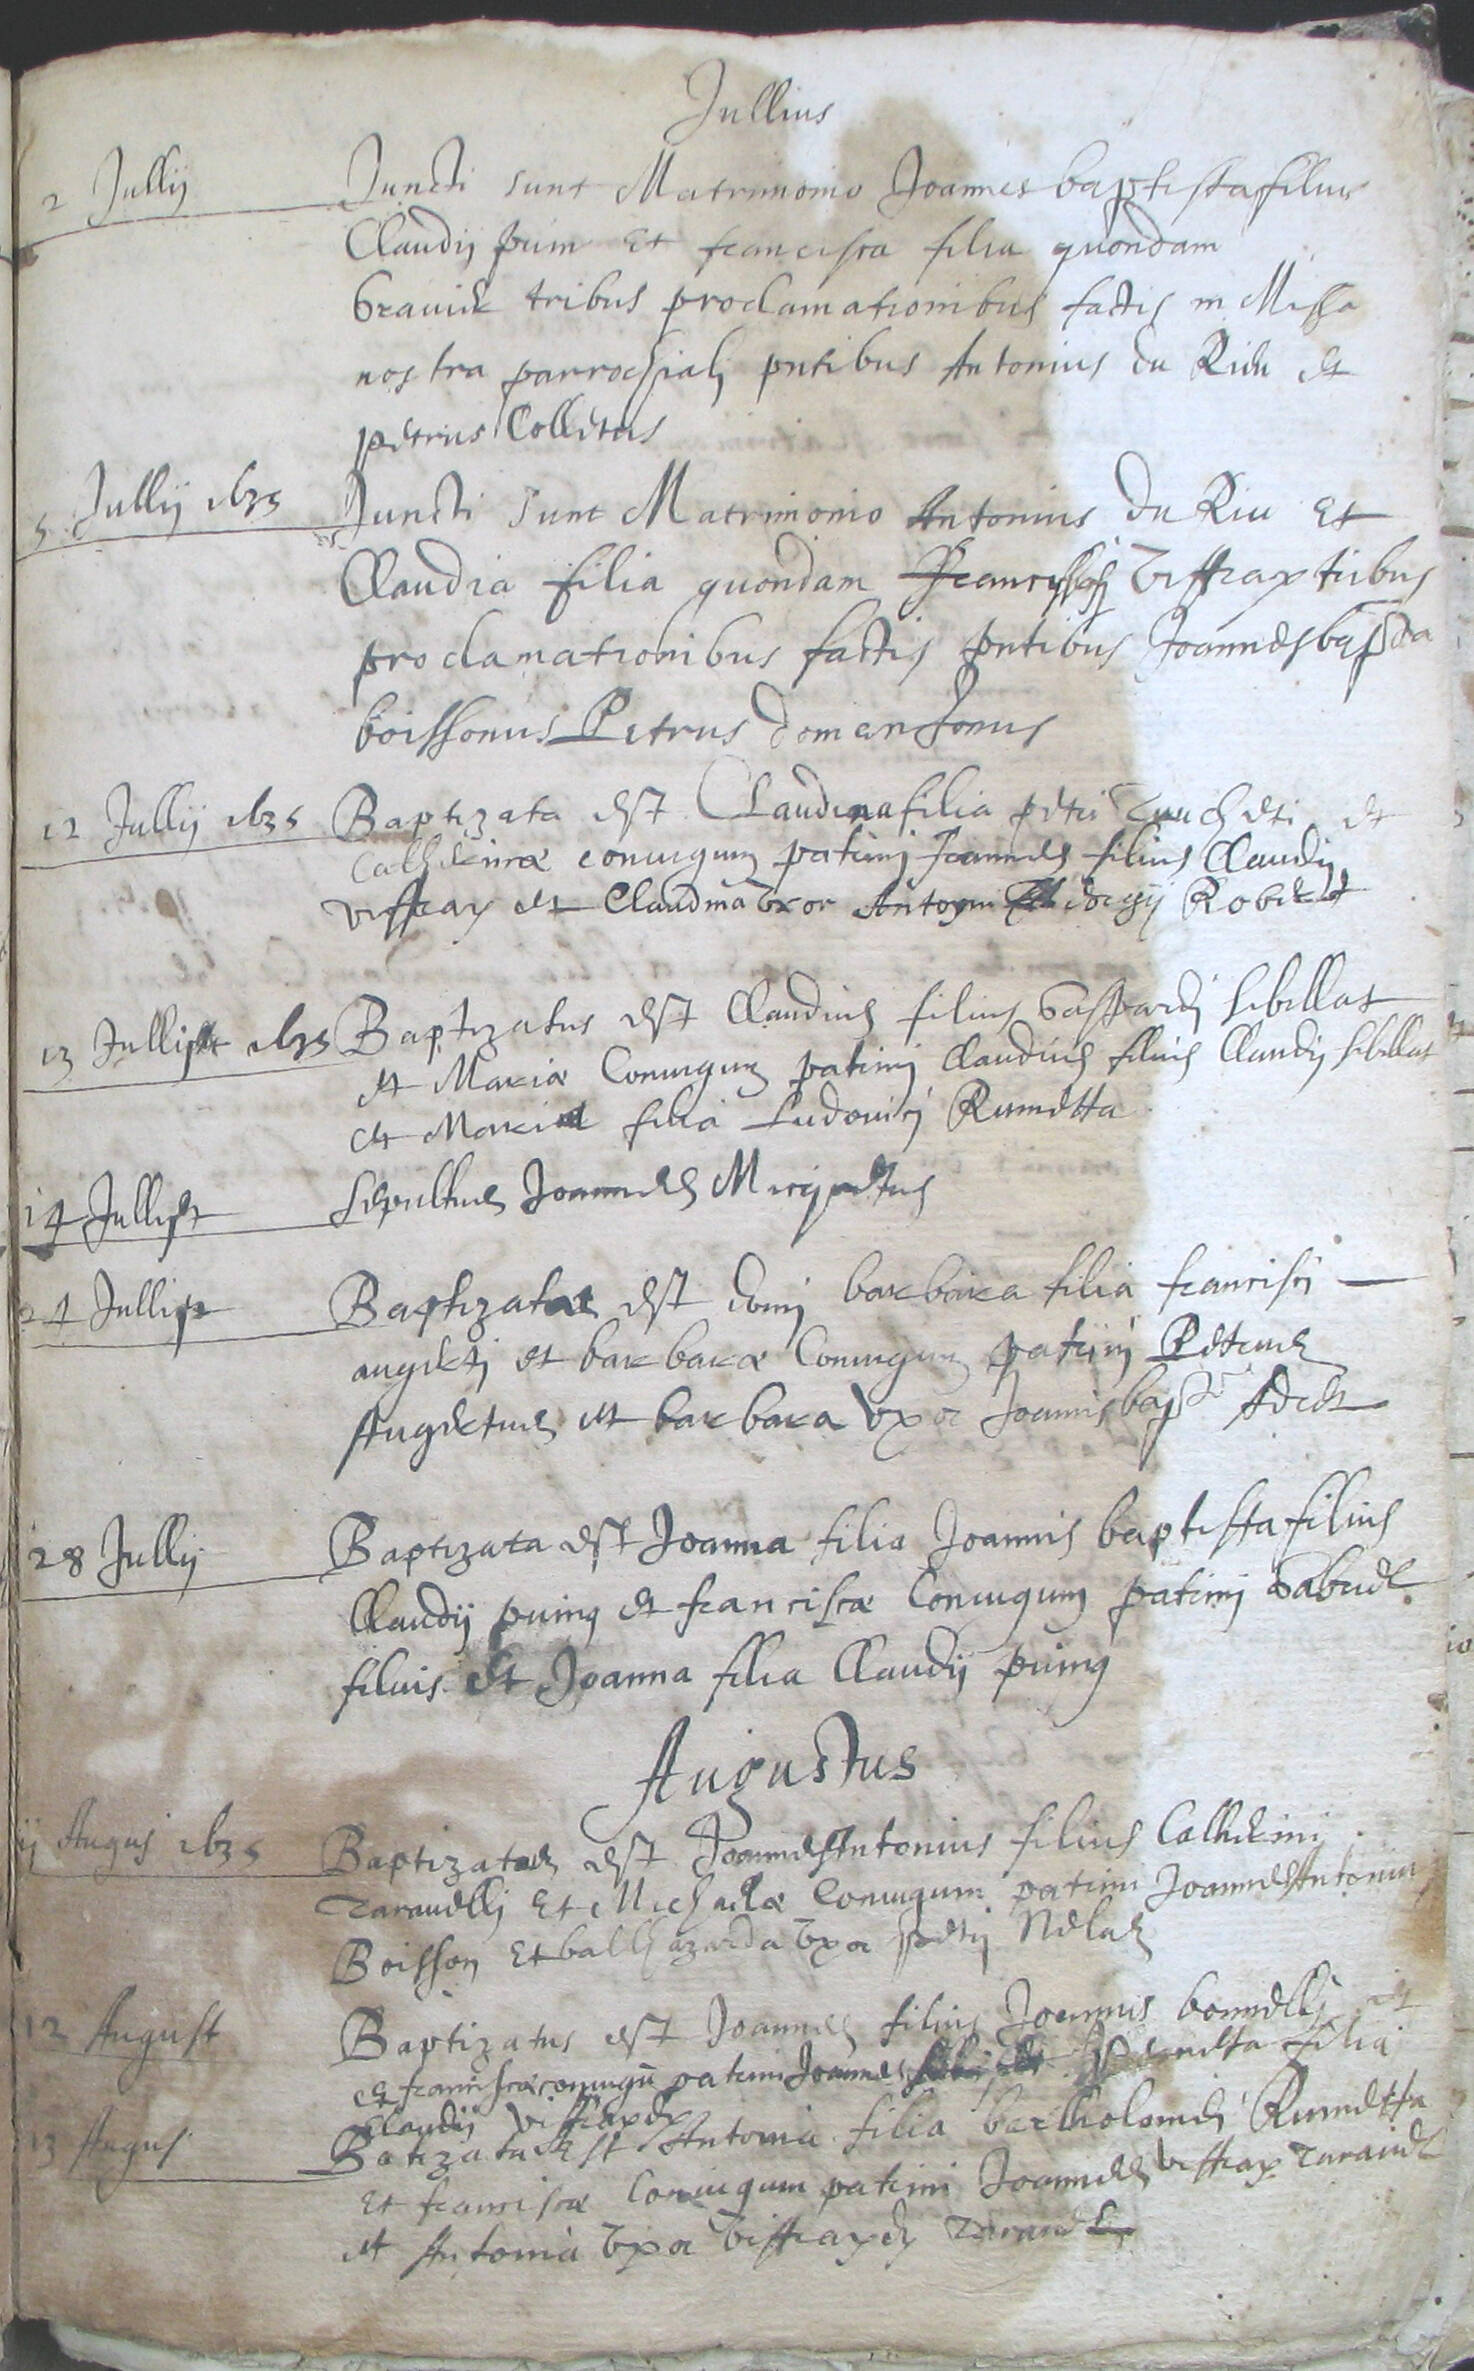 Jullius
2 Jullij Juncti sunt Matrimonio Joannes baptista filius
Claudij puin et francisca filia quondam
Grauier tribus proclamationibus factis in Missa
nostra parrochiali pntibus Antonius du Rieu et
petrus Colletus
5 Jullij 1635 Juncti sunt Matrimonio Antonius du Riu et
Claudia filia quondam Viffrax tribus
proclamationibus factis pntibus Joannesbapsta
boissonus Petrus domenIonus
12 Jullij 1635 Baptizata est Claudina filia petri et
Catherinæ coniugum patrini Joannes filius Claudij
viffray et Claudina Vxor Antonii Robert
13 Jullij 1635 Baptizatus est Claudius filius Gaspardi sibillat
et Mariæ Coniugum patrini Claudius filius Claudij sibillat
et Maria filia Ludovici Rumetta
14 Jullij sepultus Joannes
24 Jullij Baptizata est domi barbara filia francisci
augerti et barbaræ Coniugum patrini Petrus
Augertus et barbara vxor Joannis bapta
28 Jullij Baptizata est Joanna filia Joannis baptista filius
Claudij puing et franciscæ Coniugum patrini Gabriel
filius et Joanna filia Claudij puing
Augustus
ij Augus 1635 Baptizatus est JoannesAntonius filius Catherini
Taravelli et Michaelæ Coniugum patrini JoannesAntonius
Boisson et balthazarda vxor petri
12 August Baptizatus est Joannes filius Joannis bonnelli et
et franciscæ coniugū patrini Joannes filia
Claudij viffray
13 Augus Batizata est Antonia filia bartholomei Rumetta
et franciscæ Coniugum patrini Joannes viffray Taravel
et Antonia vxor viffray Taravel